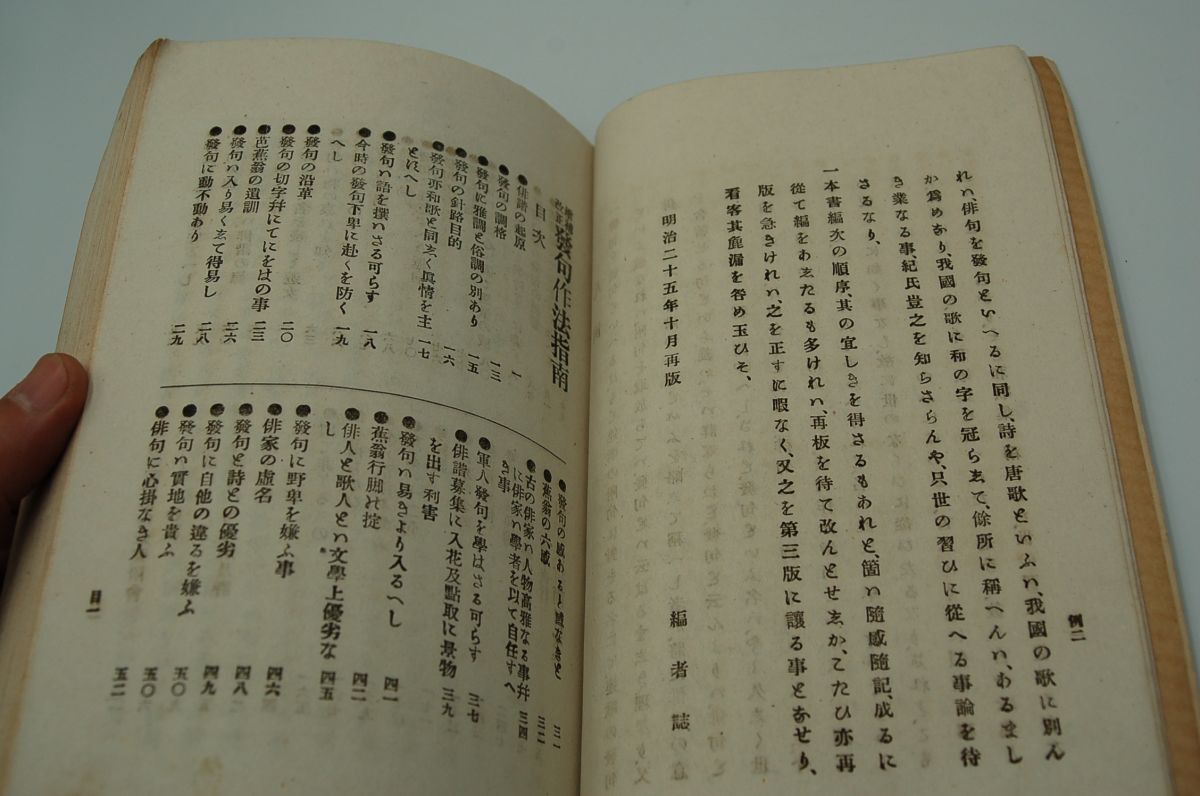 例二
れハ俳句を發句といへるに同し、詩を唐歌といふハ、我國の歌に別ん
か爲めなり、我國の歌に和の字を冠らゑて、餘所に稱へんハ、あるまし
き業なる事、紀氏豈之を知らさらんや、只世の習ひに從へる事論を待
さるなり、
一本書編次の順序、其の宜しきを得さるもあれと、箇ハ隨感隨記、成るに
從て編をあゑたるも多けれハ、再板を待て改んとせゑか、こたひ亦再
版を急きけれハ、之を正すに暇なく、又之を第三版に讓る事となせり、
看客其麁漏を咎め玉ひそ、
明治二十五年十月再版
編者誌
改正 發句作法指南
目次
●俳諧の起原 一
●發句の調格 一三
●發句に雅調と俗調の別あり 一五
●發句の針路目的 一六
●發句亦和歌と同ゑく眞情を主 一七
とすへし
●發句ハ語を撰ハさる可らす 一八
●今時の發句下卑に赴くを防く 一九
へし
●發句の沿革 二〇
●發句の切字幷にてにをはの事 二三
●芭蕉翁の遺訓 二六
●發句ハ入り易くゑて得易し 二八
●發句に動不動あり 二九
●發句の感あると感なきと 三一
●蕉翁の六感 三二
●古の俳家ハ人物高雅なる事幷 三四
に俳家ハ學者を以て自任すへ
き事
●軍人發句を學はさる可らす 三七
●俳諧募集に入花及點取に景物 三九
を出す利害
●發句ハ易きより入るへし 四一
●蕉翁行脚の掟 四二
●俳人と歌人とハ文學上優劣な 四五
し
●發句に野卑を嫌ふ事 四六
●俳家の虛名 四八
●發句と詩との優劣 四九
●發句に自他の違るを嫌ふ 五〇
●發句ハ實地を貴ふ 五〇
●俳句に心掛なき人 五二
目一